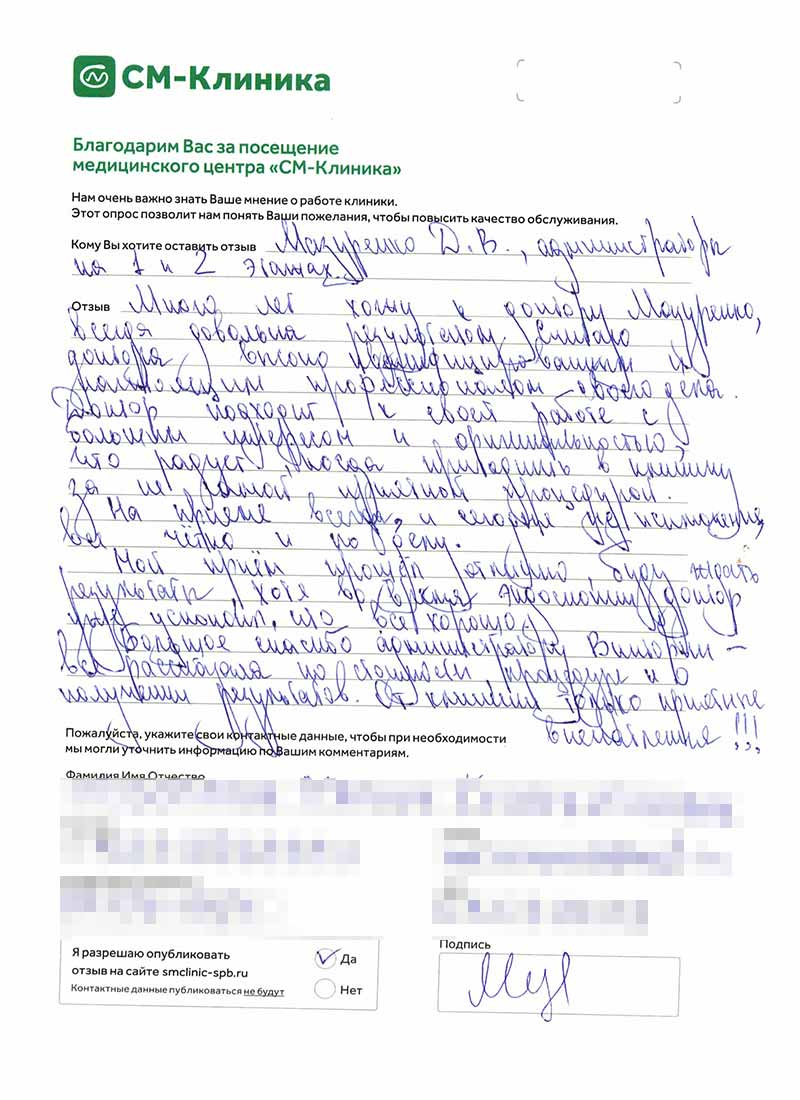 СМ-Клиника
Благодарим Вас за посещение
медицинского центра «СМ-Клиника»
Нам очень важно знать Ваше мнение о работе клиники.
Этот опрос позволит нам понять Ваши пожелания, чтобы повысить качество обслуживания.
Кому Вы хотите оставить отзыв Мазуренко Д.В., администраторы
на 1 и 2 этажах.
Отзыв Много лет хожу к доктору Мазуренко,
всегда довольна результатом. Считаю
доктора высоко квалифицированным и
настоящим профессионалом своего дела.
Доктор подходит к своей работе с
большим интересом и
что радует, когда приходишь в клинику
за не самой приятной процедурой.
На приёме всегда, и сегодня не исключение,
всё чётко и по делу.
Мой приём прошёл отлично, буду ждать
результаты, хотя во время эндоскопии доктор
уже успокоил, что всё хорошо.
Большое спасибо администратору Виктории –
всё рассказала по стоимости, процедуре и о
получении результатов. От клиники только приятные
впечатления !!!
Пожалуйста, укажите свои контактные данные, чтобы при необходимости
мы могли уточнить информацию по Вашим комментариям.
Фамилия Имя Отчество
Подпись
Я разрешаю опубликовать Да
отзыв на сайте smclinic-spb.ru
Контактные данные публиковаться не будут Нет